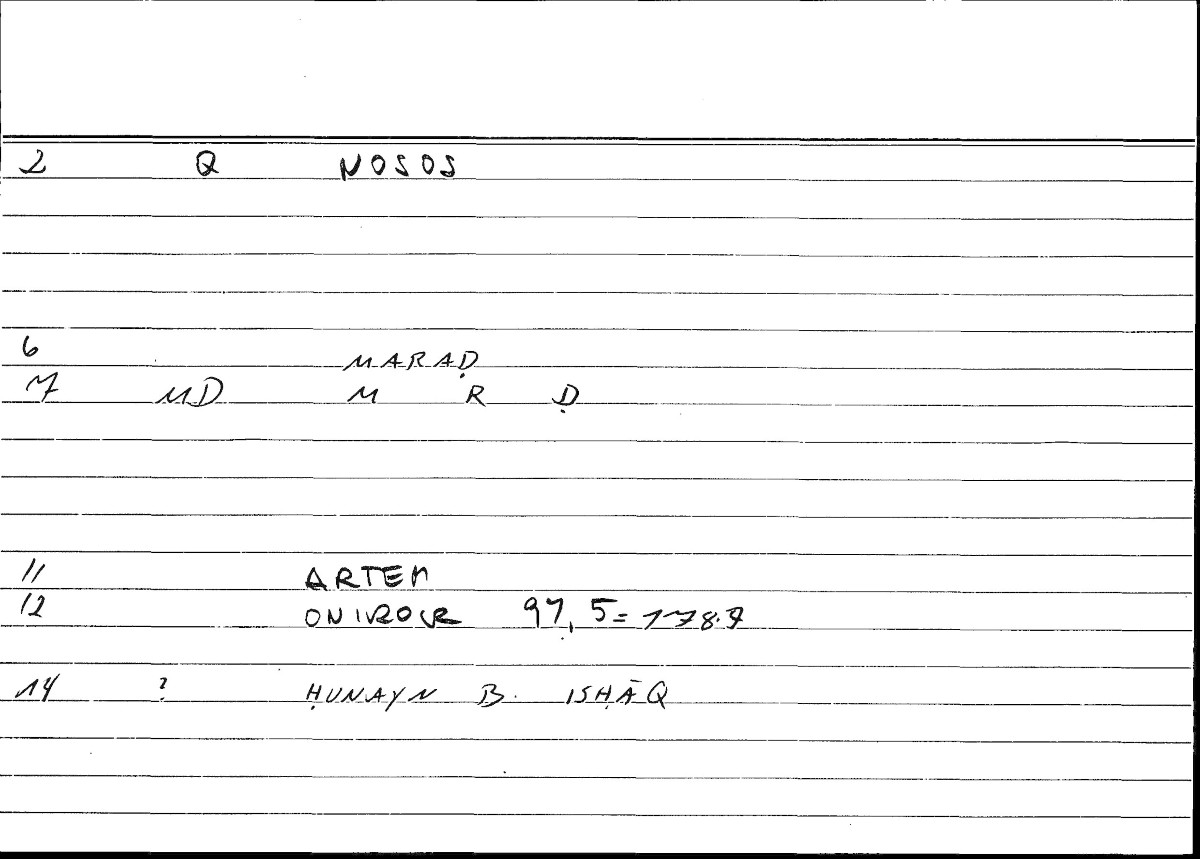 2 Q NOSOS
6 MARAḌ
7 MD M R Ḍ
11 ARTEM
12 ONIROCR 97,5=178.7
14 ? ḤUNAYN B. ISḤĀQ